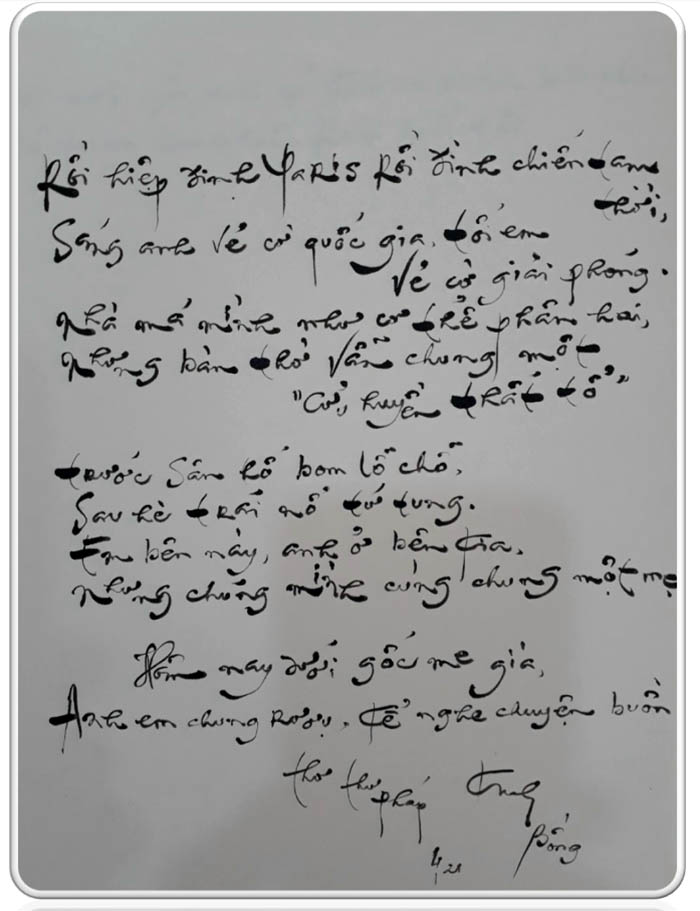 Rồi hiệp định Paris rồi đình chiến tạm
thời,
Sáng anh vẽ cờ quốc gia, tối em
vẽ cờ giải phóng.
Nhà má mình như cơ thể phân hai,
Nhưng bàn thờ vẫn chung một
"Cửu huyền thất tổ"
Trước sân hố bom lỗ chỗ,
Sau hè trái nổ tứ tung.
Em bên này, anh ở bên kia,
Nhưng chúng mình cùng chung một mẹ
Hôm nay dưới gốc me già,
Anh em chung rượu, kể nghe chuyện buồn
thơ thư pháp
Bổng
4/21